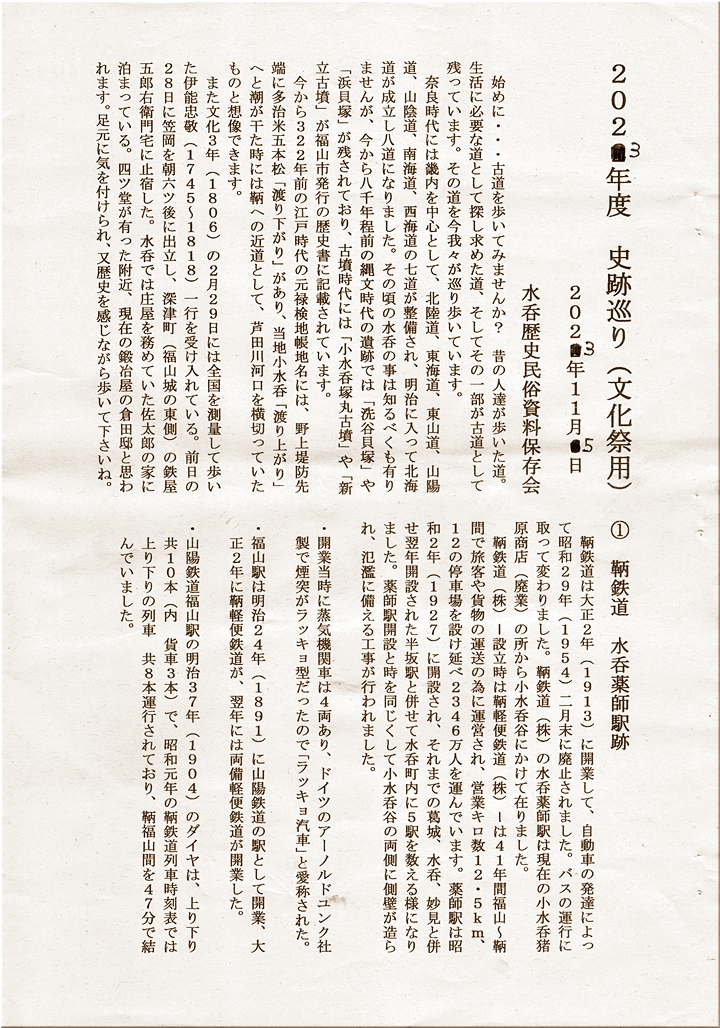 2023年度　史跡巡り（文化祭用）
2023年11月5日
水呑歴史民俗資料保存会
始めに・・・古道を歩いてみませんか？　昔の人達が歩いた道。
生活に必要な道として探し求めた道、そしてその一部が古道として
残っています。その道を今我々が巡り歩いています。
奈良時代には畿内を中心として、北陸道、東海道、東山道、山陽
道、山陰道、南海道、西海道の七道が整備され、明治に入って北海
道が成立し八道になりました。その頃の水呑の事は知るべくも有り
ませんが、今から八千年程前の縄文時代の遺跡では「洗谷貝塚」や
「浜貝塚」が残されており、古墳時代には「小水呑塚丸古墳」や「新
立古墳」が福山市発行の歴史書に記載されています。
今から322年前の江戸時代の元禄検地帳地名には、野上堤防先
端に多治米五本松「渡り下がり」があり、当地小水呑「渡り上がり」
へと潮が干た時には鞆への近道として、芦田川河口を横切っていた
ものと想像できます。
また文化3年（1806）の2月29日には全国を測量して歩い
た伊能忠敬（1745～1818）一行を受け入れている。前日の
28日に笠岡を朝六ツ後に出立し、深津町（福山城の東側）の鉄屋
五郎右衛門宅に止宿した。水呑では庄屋を務めていた佐太郎の家に
泊まっている。四ツ堂が有った附近、現在の鍛冶屋の倉田邸と思わ
れます。足元に気を付けられ、又歴史を感じながら歩いて下さいね。
①　鞆鉄道　水呑薬師駅跡
鞆鉄道は大正2年（1913）に開業して、自動車の発達によっ
て昭和29年（1954）二月末に廃止されました。バスの運行に
取って変わりました。鞆鉄道（株）の水呑薬師駅は現在の小水呑猪
原商店（廃業）の所から小水呑谷にかけて在りました。
鞆鉄道（株）ー設立時は鞆軽便鉄道（株）ーは41年間福山～鞆
間で旅客や貨物の運送の為に運営され、営業キロ数12・5km、
12の停車場を設け延べ2346万人を運んでいます。薬師駅は昭
和2年（1927）に開設され、それまでの葛城、水呑、妙見と併
せ翌年開設された半坂駅と併せて水呑町内に5駅を数える様になり
ました。薬師駅開設と時を同じくして小水呑谷の両側に側壁が造ら
れ、氾濫に備える工事が行われました。
・開業当時に蒸気機関車は4両あり、ドイツのアーノルドユンク社
製で煙突がラッキョ型だったので「ラッキョ汽車」と愛称された。
・福山駅は明治24年（1891）に山陽鉄道の駅として開業、大
正2年に鞆軽便鉄道が、翌年には両備軽便鉄道が開業した。
・山陽鉄道福山駅の明治37年（1904）のダイヤは、上り下り
共10本（内　貨車3本）で、昭和元年の鞆鉄道列車時刻表では
上り下りの列車　共8本運行されており、鞆福山間を47分で結
んでいました。